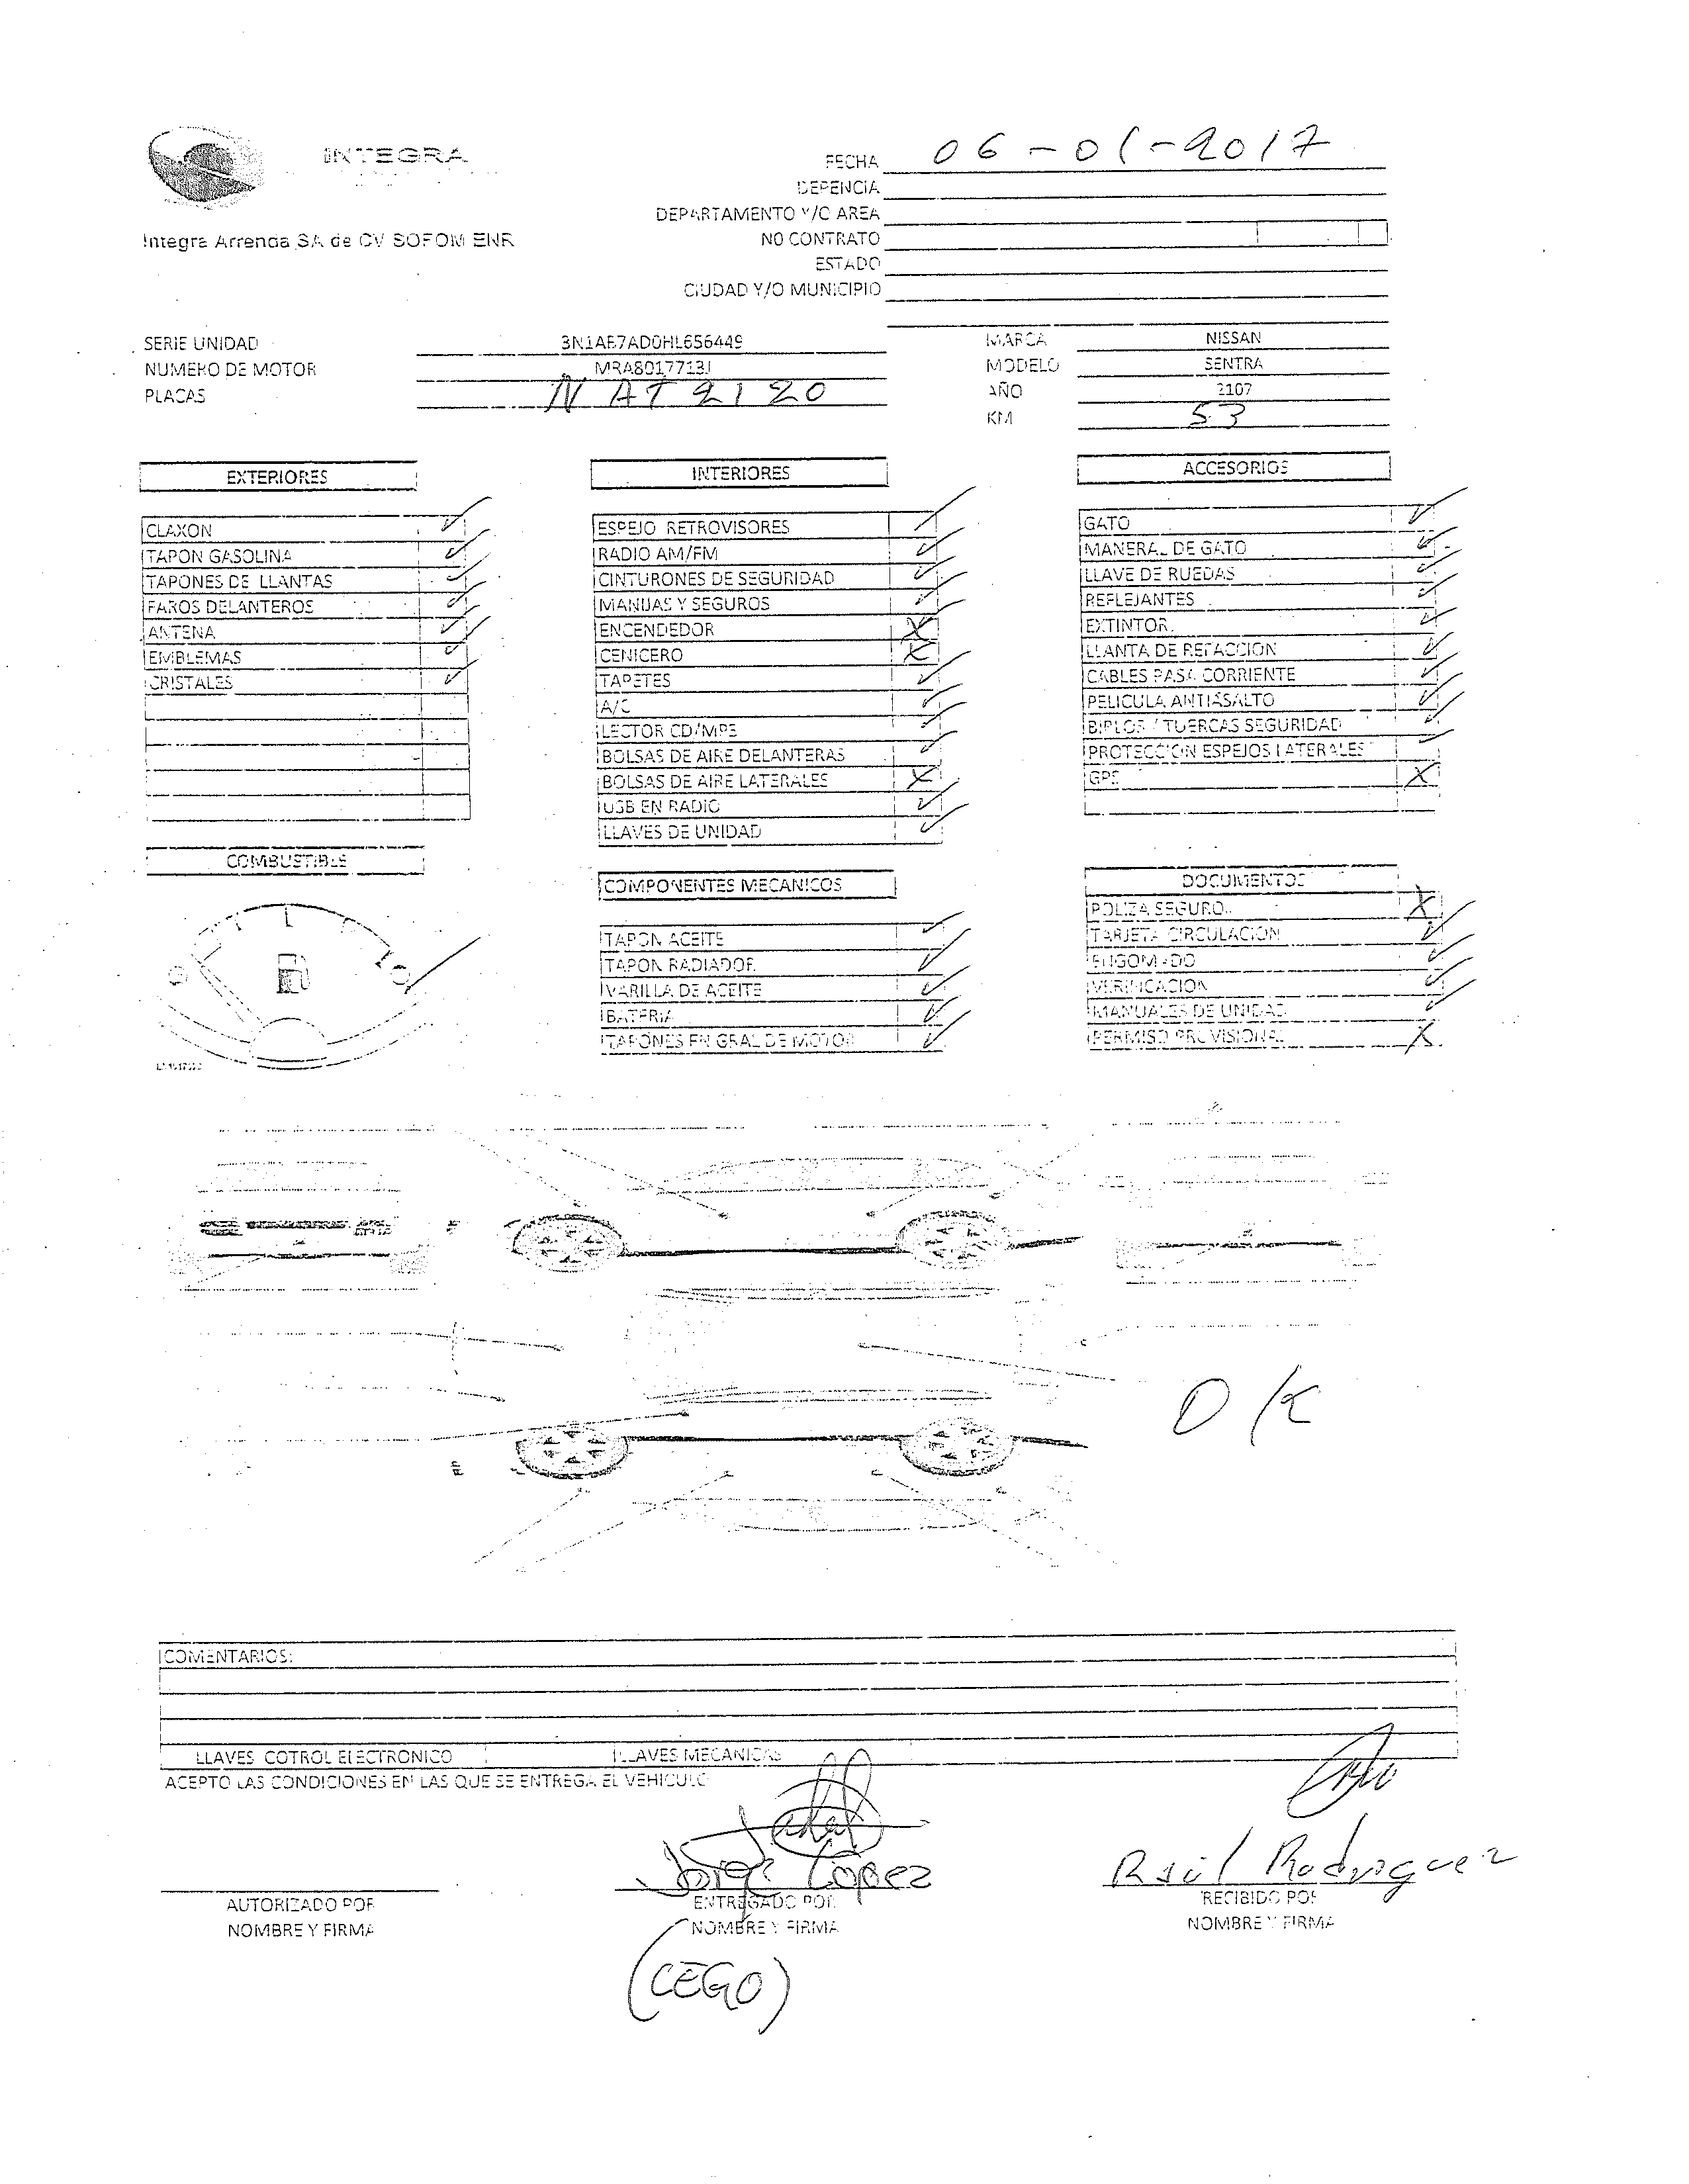 INTEGRA
Integra Arrenda SA de CV SOFOM ENR
FECHA 06-01-2017
DEPENCIA
DEPARTAMENTO Y/O AREA
NO CONTRATO
ESTADO
CIUDAD Y/O MUNICIPIO
SERIE UNIDAD 3N1AB7AD0HL656449
NUMERO DE MOTOR MRA8017713J
PLACAS NAT2120
MARCA NISSAN
MODELO SENTRA
AÑO 2107
KM 53
EXTERIORES
CLAXON
TAPON GASOLINA
TAPONES DE LLANTAS
FAROS DELANTEROS
ANTENA
EMBLEMAS
CRISTALES
COMBUSTIBLE
INTERIORES
ESPEJO RETROVISORES
RADIO AM/FM
CINTURONES DE SEGURIDAD
MANIJAS Y SEGUROS
ENCENDEDOR X
CENICERO X
TAPETES
A/C
LECTOR CD/MP3
BOLSAS DE AIRE DELANTERAS
BOLSAS DE AIRE LATERALES X
USB EN RADIO
LLAVES DE UNIDAD
COMPONENTES MECANICOS
TAPON ACEITE
TAPON RADIADOR
VARILLA DE ACEITE
BATERIA
TAPONES EN GRAL DE MOTOR
ACCESORIOS
GATO
MANERAL DE GATO
LLAVE DE RUEDAS
REFLEJANTES
EXTINTOR
LLANTA DE REFACCION
CABLES PASA CORRIENTE
PELICULA ANTIASALTO
BIRLOS / TUERCAS SEGURIDAD
PROTECCION ESPEJOS LATERALES
GPS X
DOCUMENTOS
POLIZA SEGURO X
TARJETA CIRCULACION
ENGOMADO
VERIFICACION
MANUALES DE UNIDAD
PERMISO PROVISIONAL X
OK
COMENTARIOS:
LLAVES COTROL ELECTRONICO LLAVES MECANICAS
ACEPTO LAS CONDICIONES EN LAS QUE SE ENTREGA EL VEHICULO
AUTORIZADO POR
NOMBRE Y FIRMA
Jorge Lopez
ENTREGADO POR
NOMBRE Y FIRMA
(CEGO)
Raúl Rodriguez
RECIBIDO POR
NOMBRE Y FIRMA